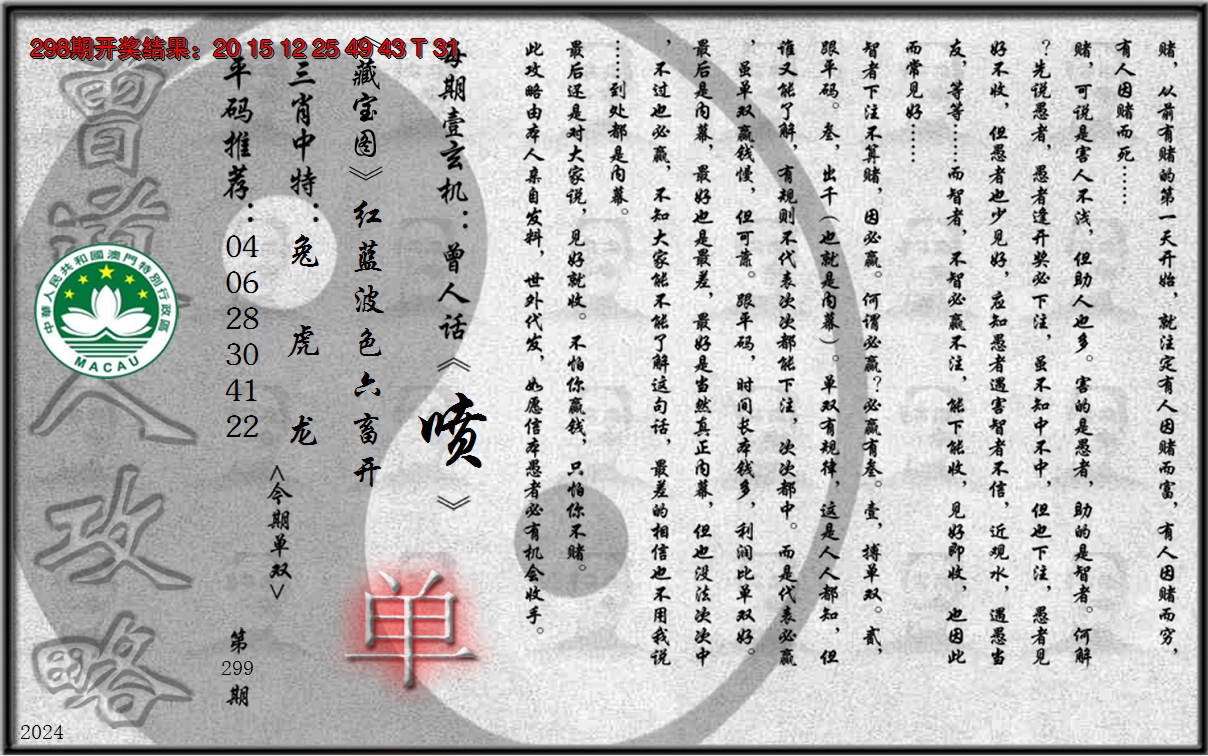 298期开奖结果：20 15 12 25 49 43 T 31
赌，从前有赌的第一天开始，就注定有人因赌而富，有人因赌而穷，
有人因赌而死……
赌，可说是害人不浅，但助人也多。害的是愚者，助的是智者。何解
？先说愚者，愚者逢开奖必下注，虽不知中不中，但也下注，愚者见
好不收，但愚者也少见好，应知愚者遇害智者不信，近观水，遇愚当
友，等等……而智者，不智必赢不注，能下能收，见好即收，也因此
而常见好……
智者下注不算赌，因必赢。何谓必赢？必赢有叁。壹，搏单双。贰，
跟平码。叁，出千（也就是内幕）。单双有规律，这是人人都知，但
谁又能了解，有规则不代表次次都能下注，次次都中。而是代表必赢
，虽单双赢钱慢，但可靠。跟平码，时间长本钱多，利润比单双好。
最后是内幕，最好也是最差，最好是当然真正内幕，但也没法次次中
，不过也必赢，不知大家能不能了解这句话，最差的相信也不用我说
……到处都是内幕。
最后还是对大家说，见好就收。不怕你赢钱，只怕你不赌。
此攻略由本人亲自发料，世外代发，如愿信本愚者必有机会收手。
每期壹玄机：曾人话《喷》
《藏宝图》红蓝波色六畜开
单
三肖中特：兔 虎 龙
<今期单双>
平码推荐：04 06 28 30 41 22
第299期
曾道人攻略
中華人民共和國澳門特別行政區
MACAU
2024